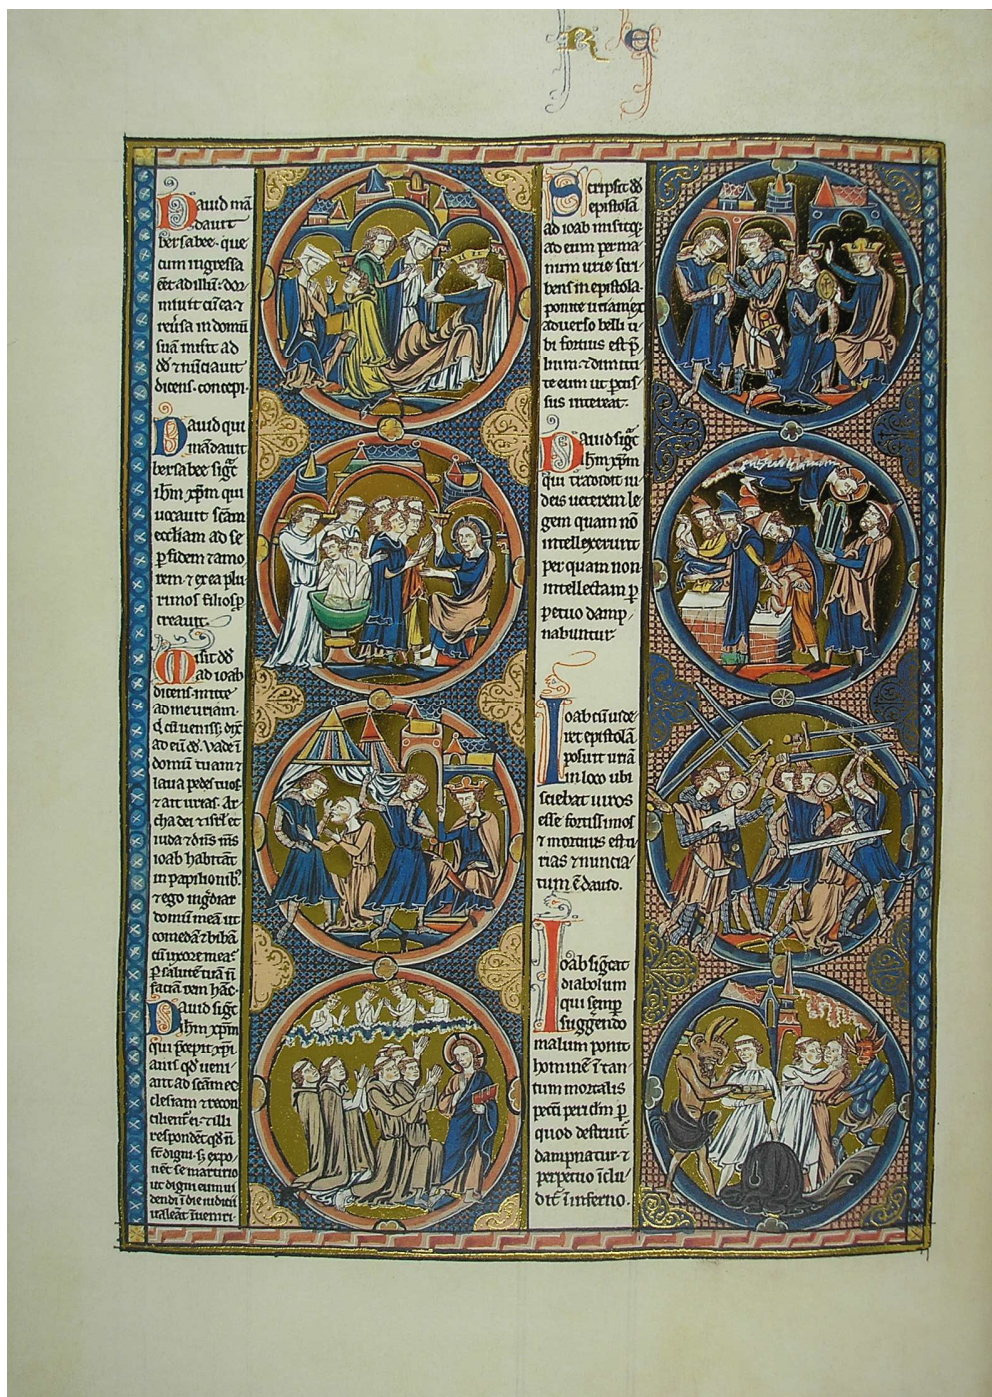 R E
Dauid mā
dauit
bersabee. que
cum ingressa
eēt ad illū. dor
miuit cū ea ⁊
reūsa in domū
suā misit ad
dd̄ ⁊ nūciauit
dicens. concepi.
Dauid qui
mādauit
bersabee sigᵗ
ihm xp̄m qui
uocauit scām
eccliam ad se
ꝑ fidem ⁊ amo
rem ⁊ ex ea plu
rimos filios
creauit.
Misit dd̄
ad ioab
dicens. mitte
ad me uriam.
ad eū dd̄. Vade ī
domū tuam ⁊
laua pedes tuos
⁊ ait urias. Ar
cha dei ⁊ isrl̄ et
iuda ⁊ dn̄s m̄s
ioab habitāt
in papilionib;
⁊ ego ingͥdiar
domū meā ut
comedā ⁊ bibā
cū uxore mea.
ꝑ salutē tuā ñ
faciā rem hāc.
Dauid sigᵗ
ihm xp̄m
qui p̄cepit xp̄i
anis qd̄ ueni
ant ad scām ec
clesiam ⁊ recon
cilient̄ ei ⁊ illi
respondēt qd̄ ñ
st̄ digni. s; expo
nēt se martirio
ut digni eum ui
dendi ī die iudicii
ualeāt īueniri.
Scripsit dd̄
epistolā
ad ioab misitq;
ad eum per ma
num urie scri
bens in epistola.
ponite uriam ex
aduerso belli u
bi fortius est p̄
lium. ⁊ dimitti
te eum ut ꝑcus
sus intereat.
Dauid sigᵗ
ihm xp̄m
qui tradidit iu
deis ueterem le
gem quam nō
intellexerunt
per quam non
intellectam ꝑ
petuo damp
nabuntur.
Ioab cū uide
ret epistolā
posuit uriā
in loco ubi
sciebat uiros
esse fortissimos
⁊ mortuus est u
rias ⁊ nuncia
tum ē dauid.
Ioab sigᵗcat
diabolum
qui semp̄
suggerendo
malum ponit
hominē ī tan
tum mortalis
pccī periclm ꝑ
quod destruit̄
dampnatur ⁊
perpetuo īclu
dit̄ ī inferno.